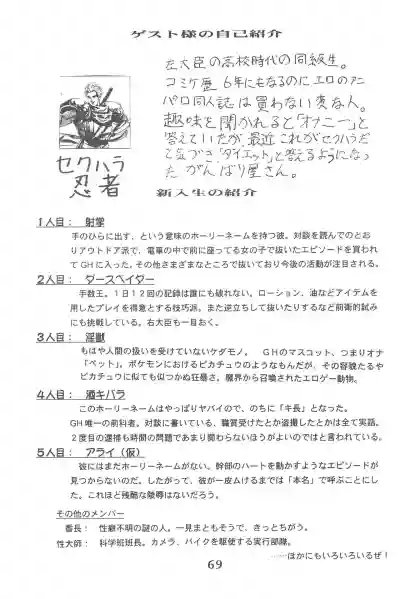 ゲスト様の自己紹介
左大臣の高校時代の同級生。
コミケ歴6年にもなるのにエロのアニ
パロ同人誌は買わない変な人。
趣味を聞かれると「オナニー」と
答えていたが、最近これがセクハラだ
と気づき「ダイエット」と答えるようになっ
た がんばり屋さん。
セクハラ
忍者
新入生の紹介
1人目： 射掌
手のひらに出す、という意味のホーリーネームを持つ彼。対談を読んでのとお
りアウトドア派で、電車の中で前に座ってる女の子で抜いたエピソードを買われ
てGHに入った。その他さまざまなところで抜いており今後の活動が注目される。
2人目： ダースペイダー
手数王。1日12回の記録は誰にも破れない。ローション、油などアイテムを
用したプレイを得意とする技巧派。また逆立ちして抜いたりするなど前衛的試み
にも挑戦している。右大臣も一目おく。
3人目： 淫獣
もはや人間の扱いを受けていないケダモノ。 GHのマスコット、つまりオナ
「ペット」。ポケモンにおけるピカチュウのようなもんだが、その容貌たるや
ピカチュウに似ても似つかぬ狂暴さ。魔界から召喚されたエロゲー動物。
4人目： 酒キバラ
このホーリーネームはやっぱりヤバイので、のちに「キ長」となった。
GH唯一の前科者。対談に書いている、職質受けたとか盗撮したとかは全て実話。
2度目の逮捕も時間の問題であまり関わらないほうがよいのではと言われている。
5人目： アライ（仮）
彼にはまだホーリーネームがない。幹部のハートを動かすようなエピソードが
見つからないのだ。したがって、彼が一皮むけるまでは「本名」で呼ぶことにし
た。これほど残酷な陵辱はないだろう。
その他のメンバー
番長： 性癖不明の謎の人。一見まともそうで、きっとちがう。
性大師： 科学班班長。カメラ、バイクを駆使する実行部隊。
……ほかにもいろいろいるぜ！
69